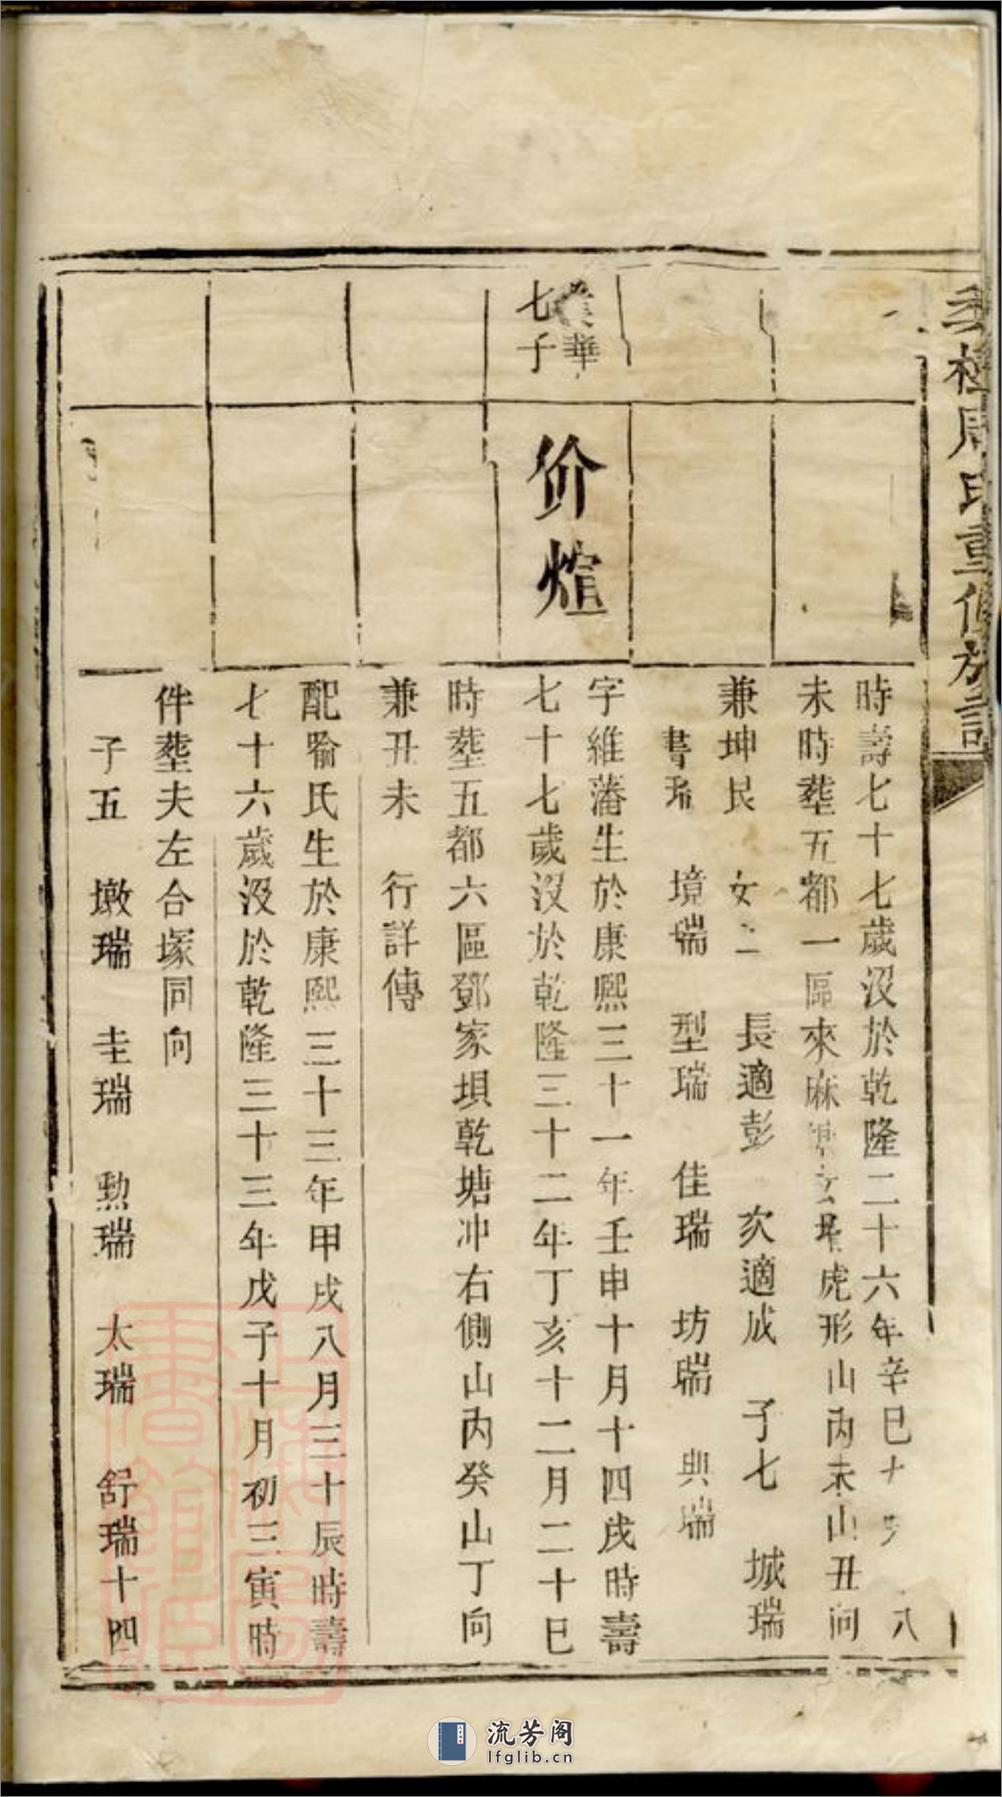 周氏重修族譜
時壽七十七歲沒於乾隆二十六年辛巳十 八
未時塟五都一區來麻 虎形山內未山丑向
兼坤艮 女二 長適彭 次適成 子七 城瑞
書瑞 境瑞 型瑞 佳瑞 坊瑞 典瑞
華
七子
价煊
字維藩生於康熙三十一年壬申十月十四戌時壽
七十七歲沒於乾隆三十二年丁亥十二月二十巳
時塟五都六區鄧家垻乾塘冲右側山內癸山丁向
兼丑未 行詳傳
配喻氏生於康熙三十三年甲戌八月三十辰時壽
七十六歲沒於乾隆三十三年戊子十月初三寅時
件塟夫左合塚同向
子五 墩瑞 圭瑞 勲瑞 太瑞 舒瑞十四
流芳阁
lfglib.cn